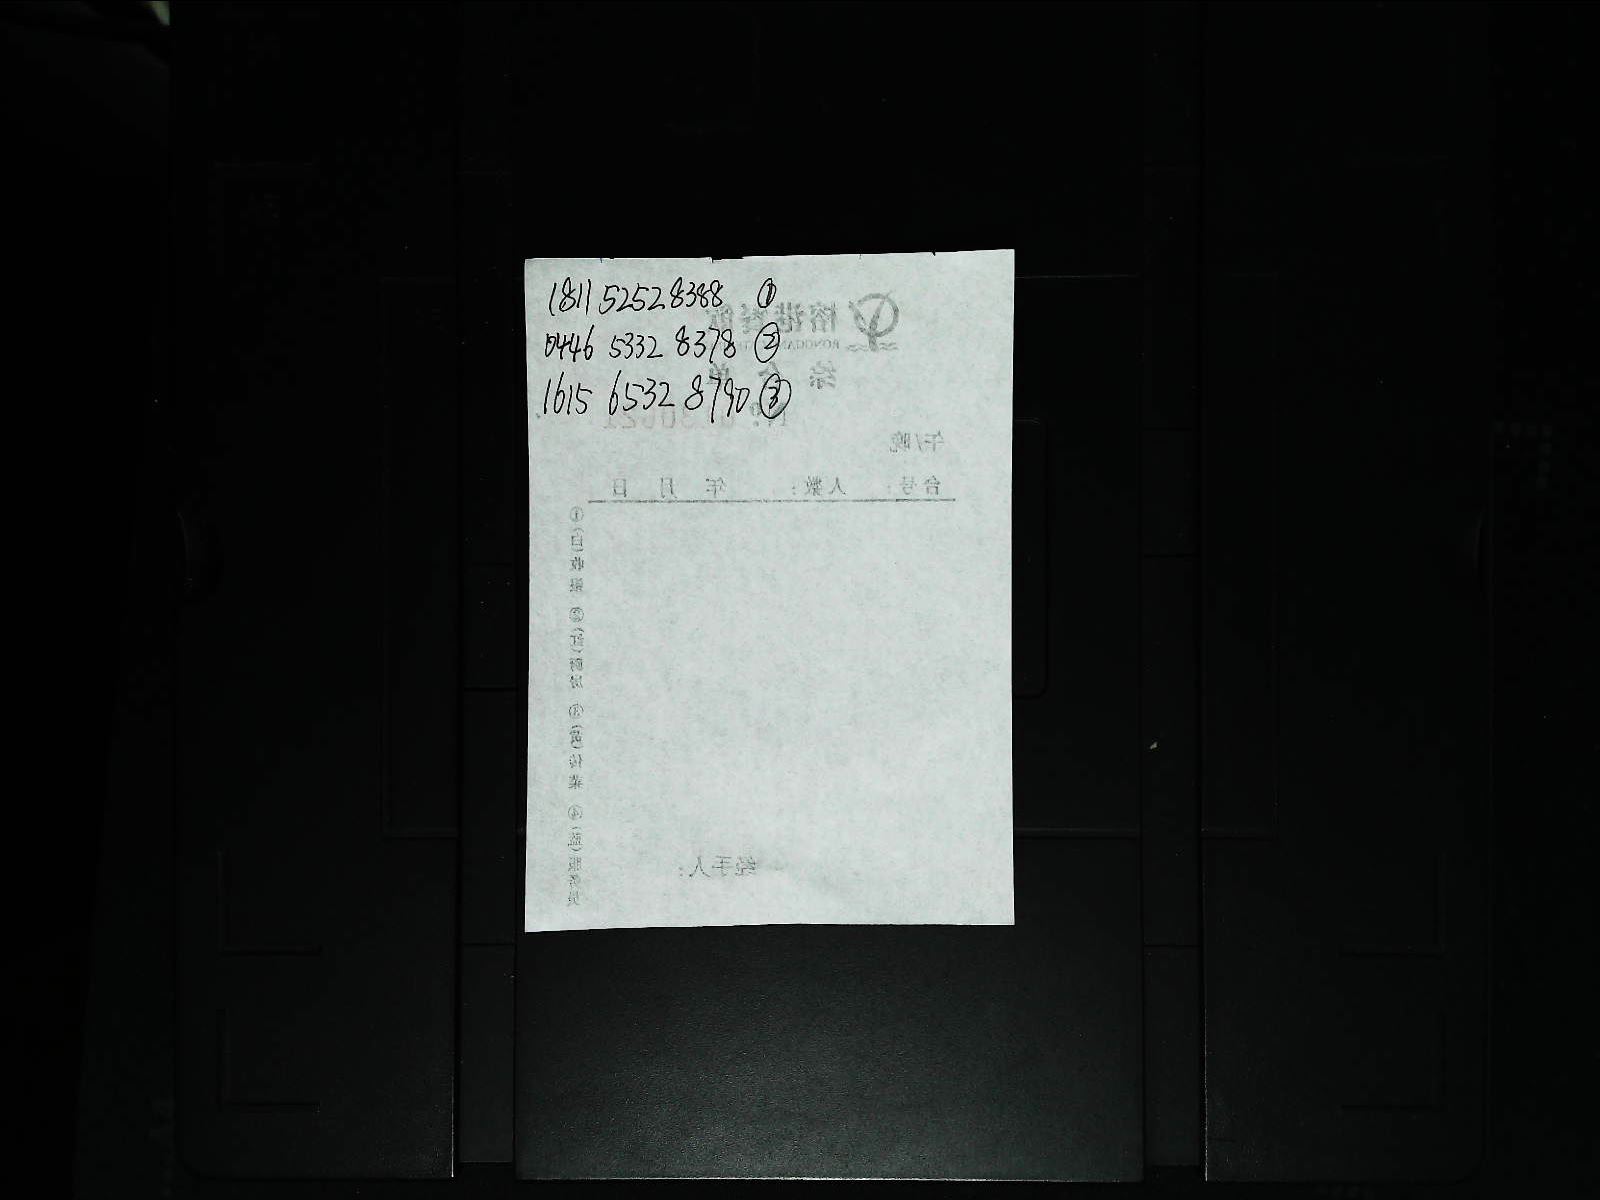 1811 5252 8388 ①
0446 5332 8378 ②
1615 6532 8790 ③
榕港餐饮
综合单
午/晚
台号: 人数: 年 月 日
①(白)收银 ②(红)厨房 ③(黄)传菜 ④(蓝)服务员
经手人: